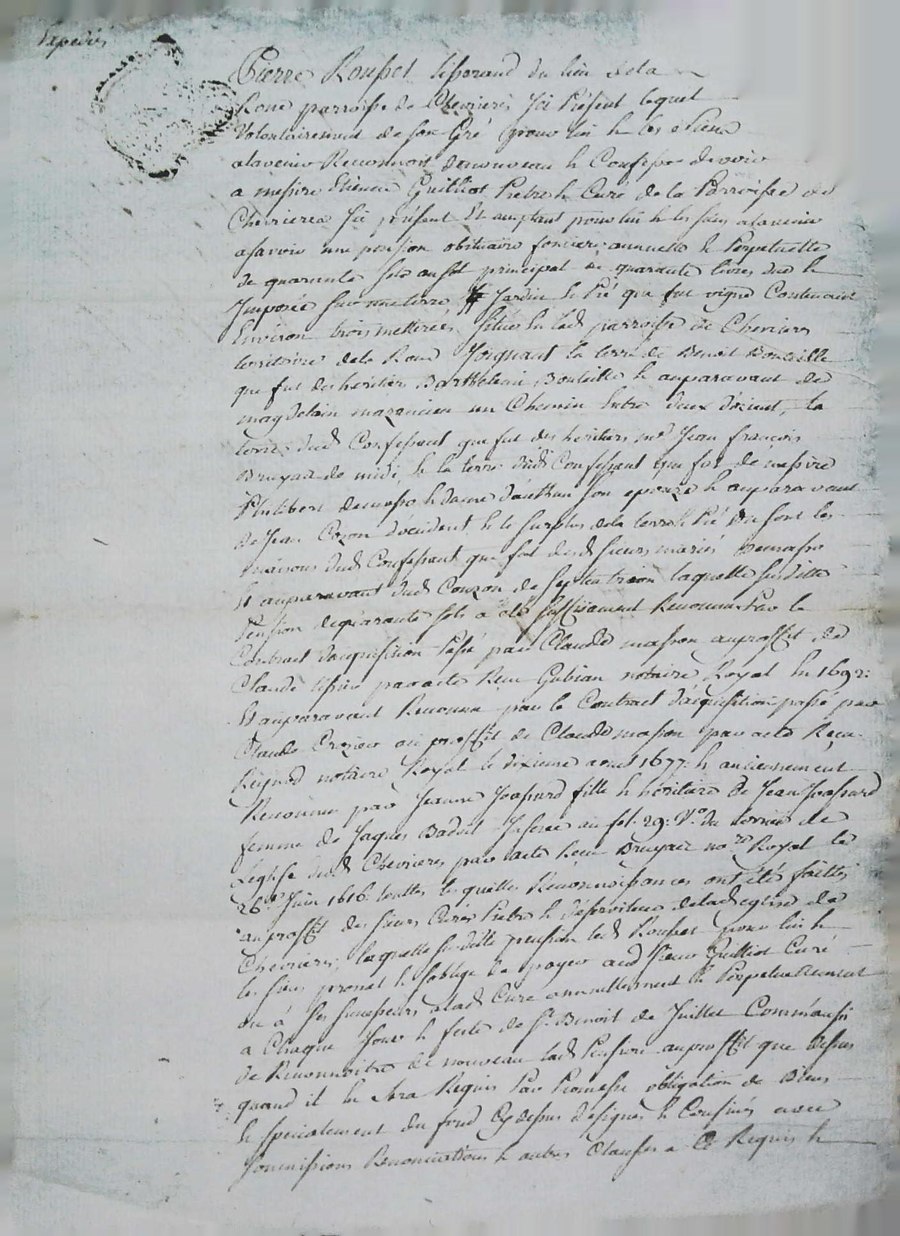 Expedié
Pierre Rousset tisserand du lieu de la
Rone parroisse de Chevrieres Ici Présent lequel
Volontairement de son Gré pour lui & les siens
alavenir Reconnoit denouveau & Confesse devoir
a messire Etienne Guilliot Pretre & Curé de la Parroisse de
Chevrieres Ici présent Et acceptant pour lui & les siens alavenir
asavoir une pension obituaire fonciere annuelle & Perpetuelle
de quarante sols au sol principal de quarante livres due &
Imposée sur une terre Jardin & Pré que fut vigne Contenant
Environ trois metterées, situés en lad parroisse de Chevrieres
territoire dela Rone Joignant la terre de Benoit Bouteille
que fut des heritiers Barthelemi Bouteille & auparavant de
magdelaine un Chemin Entre deux dorient, la
terre dud Confessant que fut des heritiers me Jean francois
Bruyas de midi, & la terre dudt Confessant que fut de messire
Philibert & dame son epouze & auparavant
de Jean Cozon doccident & le surplus dela terre & Pré ou sont les
maisons dud Confessant que fut desd sieurs mariés
Et auparavant dud Couzon de septentrion laquelle susditte
Pension dequarante sols a été suffisament Reconnue Par le
Contract dacquisition Passé par Claude masson auproffit de
Claude par acte Recu Gubian notaire Royal En 1692:
Et auparavant Reconnue par le Contract d'acquisition passé par
Claude au proffit de Claude masson par acte Recu
notaire Royal le dixieme aout 1677 & anciennement
Reconnue par Jeanne Joassard fille & héritiere de Jean Joassard
femme de Jaques Badoil Inseree au fol. 29: Vo. du terrier de
Leglise dud Chevrieres par acte Recu Bruyas nore Royal le
26e Juin 1616 touttes lesquelles Reconnoissances ont été faittes
auproffit des sieurs Curés Pretres & desserviteurs delad eglise de
Chevrieres, laquelle susditte pension led Rousset pour lui &
les siens promet & soblige de payer aud sieur Guilliot Curé
ou à ses successeurs alad Cure annuellement & Perpetuellement
a Chaque Jour & feste de St. Benoit de Juillet Comm'aussi
de Reconnoitre de nouveau lad Pension auproffit que dessus
quand il En sera Requis Par Promesse obligation de Biens
& specialement du fond Cy dessus désigné & Confiné avec
soumissions Renonciations & autres Clauses a Ce Requis &